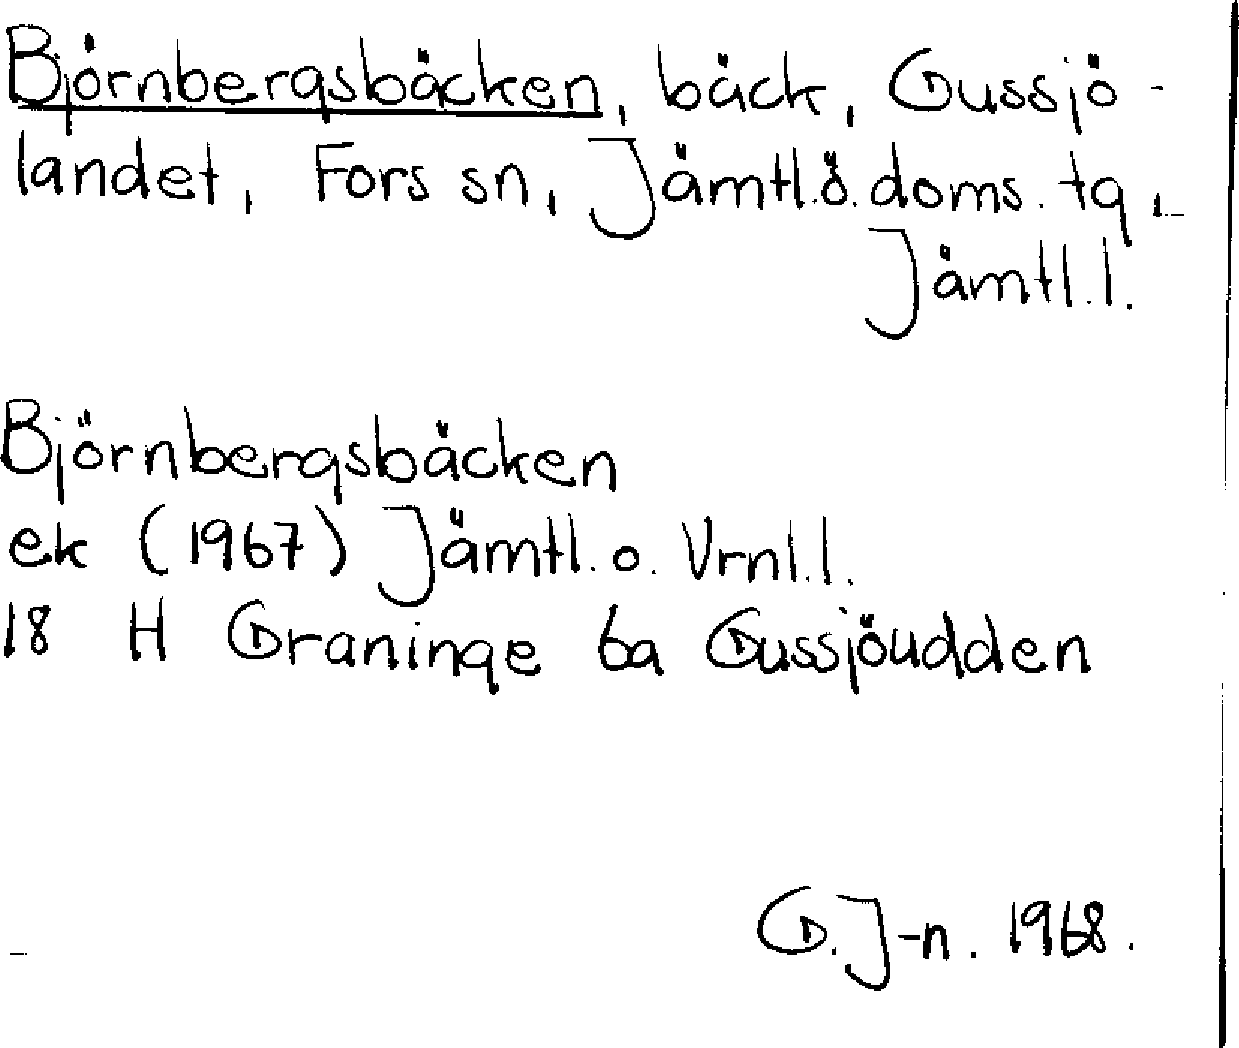 Björnbergsbäcken, bäck, Gussjö-
landet, Fors sn, Jämtl.ö.doms.tg,
Jämtl.l.
Björnbergsbäcken
ek (1967) Jämtl. o. Vrnl.l.
18 H Graninge 6a Gussjöudden
G.J-n. 1968.